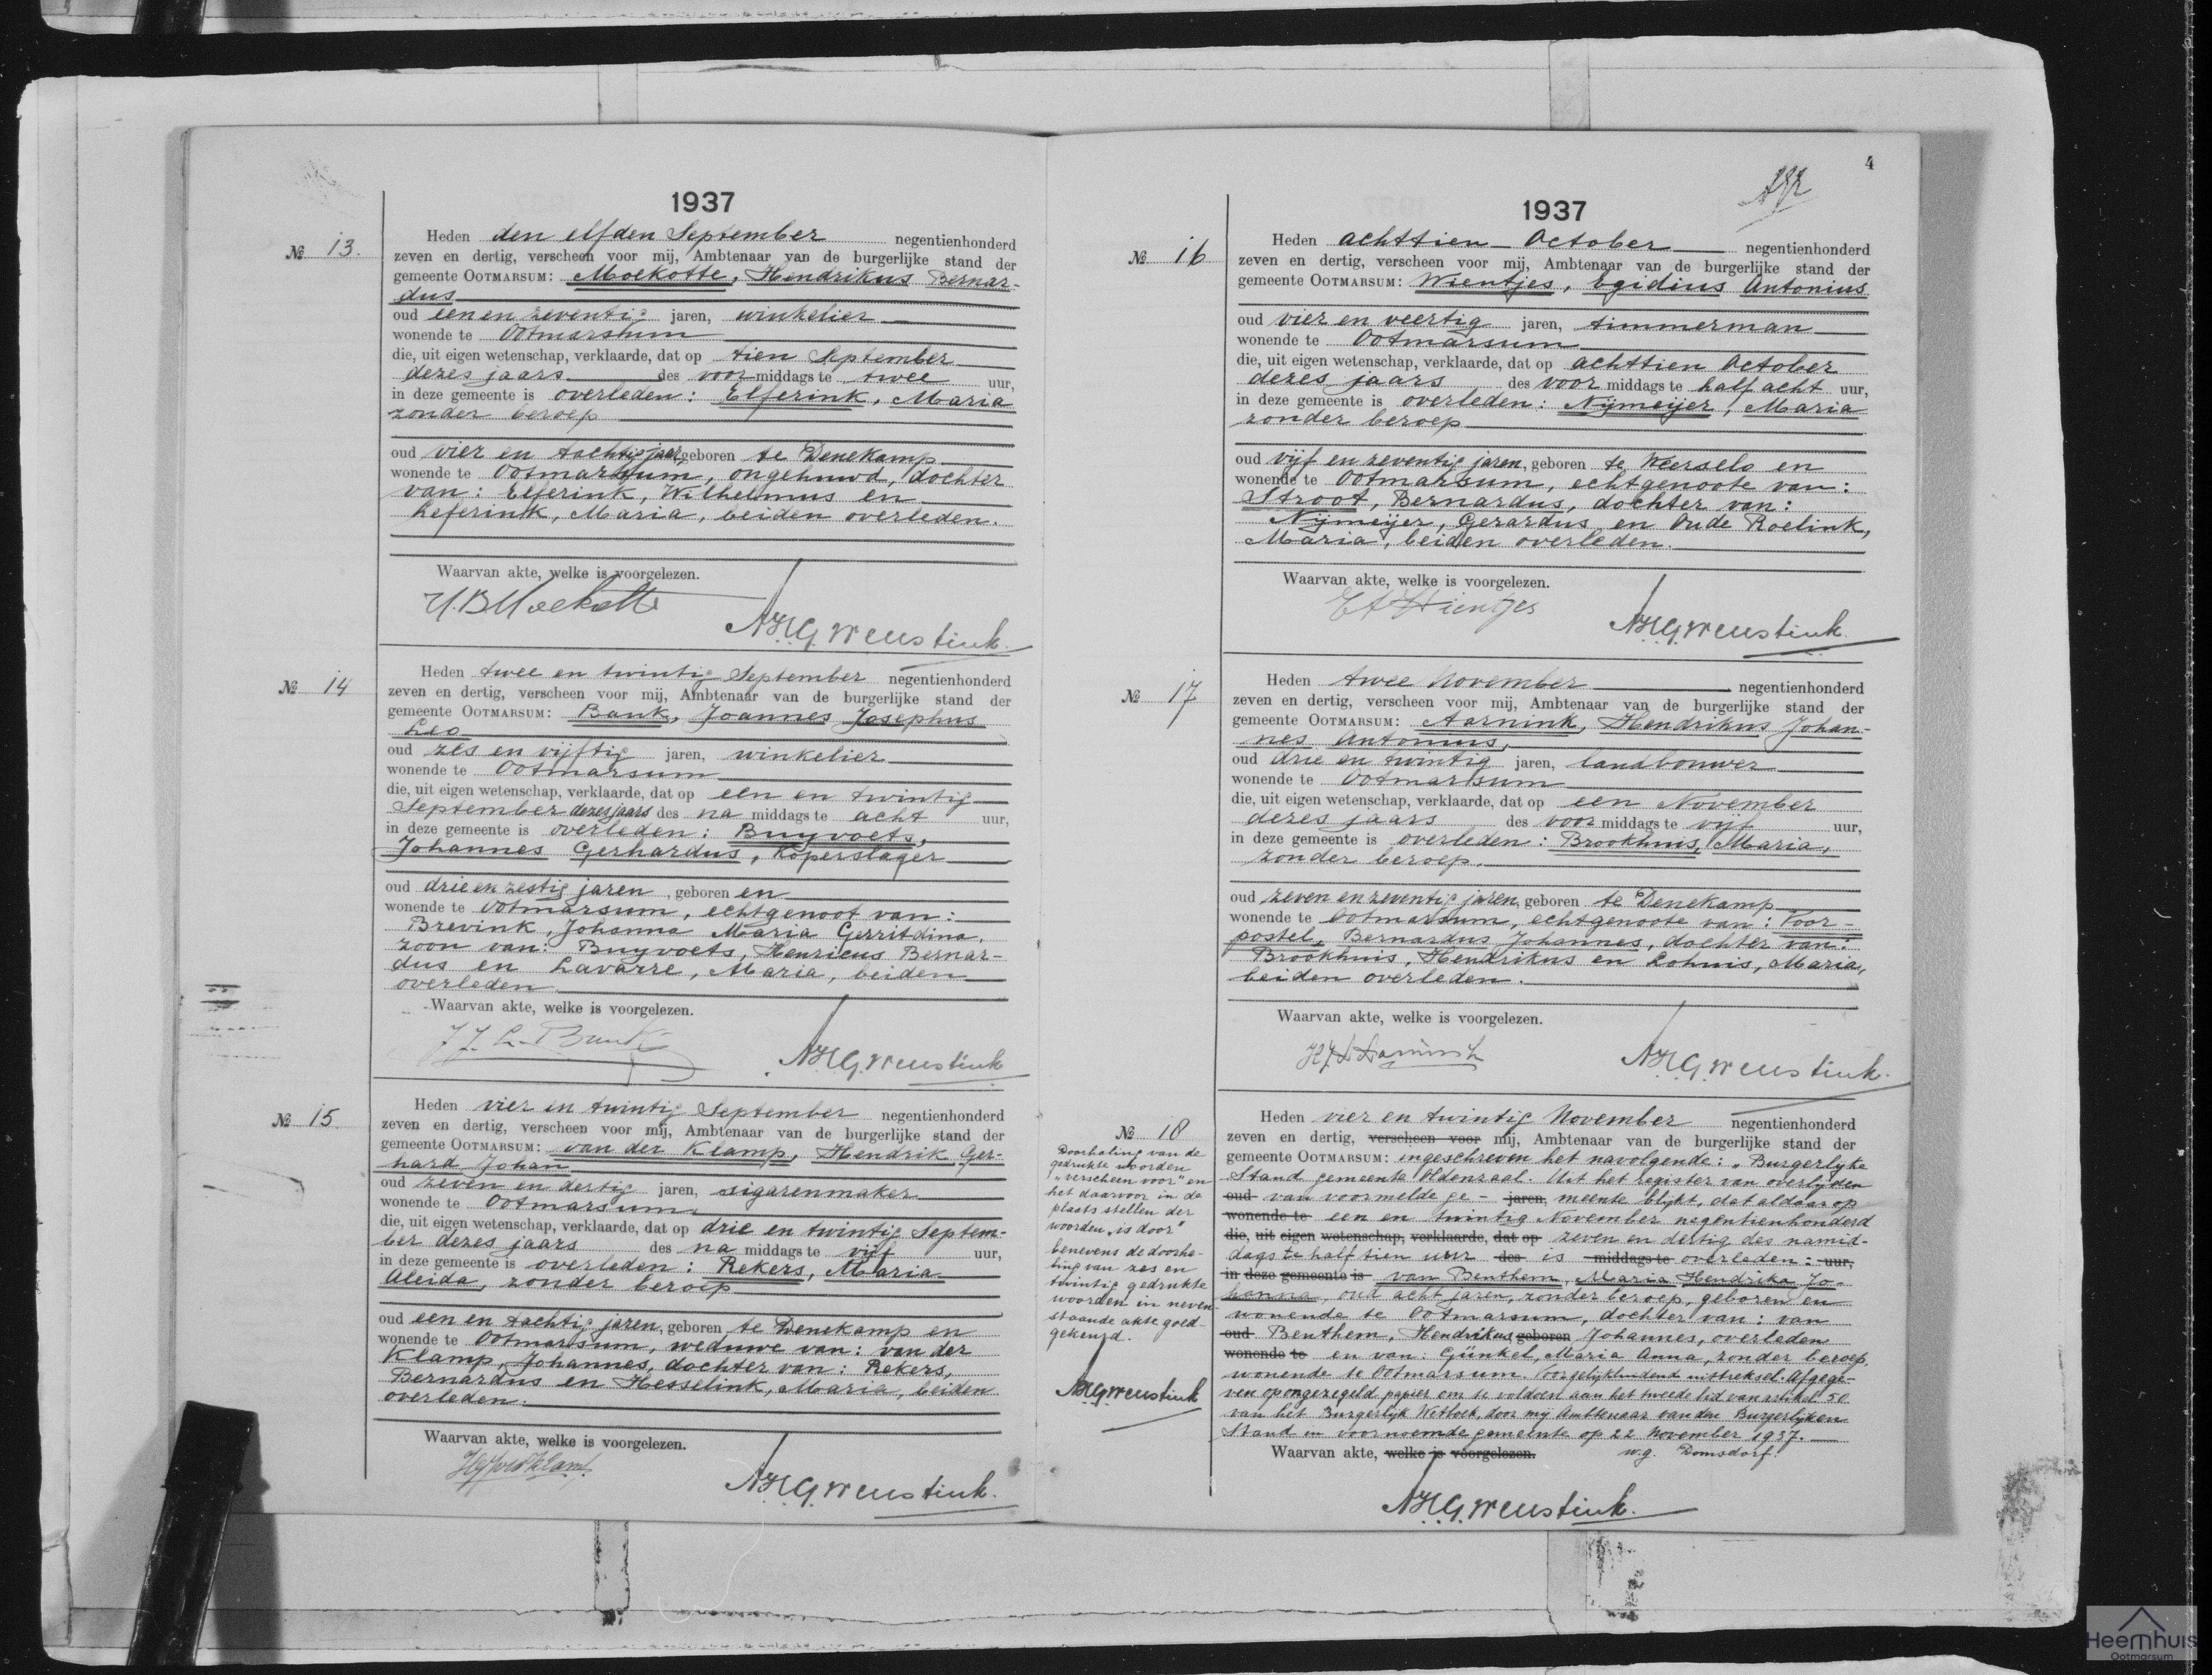 1937
Nº 13.
Heden den elfden September negentienhonderd
zeven en dertig, verscheen voor mij, Ambtenaar van de burgerlijke stand der
gemeente OOTMARSUM: Moekotte, Hendrikus Bernar-
dus
oud een en zeventig jaren, winkelier
wonende te Ootmarsum
die, uit eigen wetenschap, verklaarde, dat op tien September
dezes jaars des voor middags te twee uur,
in deze gemeente is overleden: Elferink, Maria
zonder beroep
oud vier en tachtig jaar, geboren te Denekamp
wonende te Ootmarsum, ongehuwd, dochter
van: Elferink, Wilhelmus en
Leferink, Maria, beiden overleden.
Waarvan akte, welke is voorgelezen.
H.B. Moekotte
A.H.G. Weustink.
Nº 14
Heden twee en twintig September negentienhonderd
zeven en dertig, verscheen voor mij, Ambtenaar van de burgerlijke stand der
gemeente OOTMARSUM: Bank, Joannes Josephus
Leo
oud zes en vijftig jaren, winkelier
wonende te Ootmarsum
die, uit eigen wetenschap, verklaarde, dat op een en twintig
September dezes jaars des na middags te acht uur,
in deze gemeente is overleden: Buyvoets,
Johannes Gerhardus, koperslager
oud drie en zestig jaren, geboren en
wonende te Ootmarsum, echtgenoot van:
Brevink, Johanna Maria Gerritdina,
zoon van: Buyvoets, Henricus Bernar-
dus en Lavarre, Maria, beiden
overleden.
Waarvan akte, welke is voorgelezen.
J.J.L. Bank
A.H.G. Weustink
Nº 15
Heden vier en twintig September negentienhonderd
zeven en dertig, verscheen voor mij, Ambtenaar van de burgerlijke stand der
gemeente OOTMARSUM: van der Klamp, Hendrik Ger-
hard Johan
oud zeven en dertig jaren, sigarenmaker
wonende te Ootmarsum
die, uit eigen wetenschap, verklaarde, dat op drie en twintig Septem-
ber dezes jaars des na middags te vijf uur,
in deze gemeente is overleden: Rekers, Maria
Aleida, zonder beroep
oud een en tachtig jaren, geboren te Denekamp en
wonende te Ootmarsum, weduwe van: van der
Klamp, Johannes, dochter van: Rekers,
Bernardus en Hesselink, Maria, beiden
overleden.
Waarvan akte, welke is voorgelezen.
A.H.G. Weustink.
4
1937
Nº 16
Heden achttien October negentienhonderd
zeven en dertig, verscheen voor mij, Ambtenaar van de burgerlijke stand der
gemeente OOTMARSUM: Wientjes, Egidius Antonius
oud vier en veertig jaren, timmerman
wonende te Ootmarsum
die, uit eigen wetenschap, verklaarde, dat op achttien October
dezes jaars des voor middags te half acht uur,
in deze gemeente is overleden: Nijmeijer, Maria
zonder beroep
oud vijf en zeventig jaren, geboren te Weerselo en
wonende te Ootmarsum, echtgenoote van:
Stroot, Bernardus, dochter van:
Nijmeijer, Gerardus en Oude Roelink,
Maria, beiden overleden.
Waarvan akte, welke is voorgelezen.
E A Wientjes
A.H.G. Weustink.
Nº 17
Heden twee November negentienhonderd
zeven en dertig, verscheen voor mij, Ambtenaar van de burgerlijke stand der
gemeente OOTMARSUM: Aarnink, Hendrikus Johan-
nes Antonius,
oud drie en twintig jaren, landbouwer
wonende te Ootmarsum
die, uit eigen wetenschap, verklaarde, dat op een November
dezes jaars des voor middags te vijf uur,
in deze gemeente is overleden: Brookhuis, Maria,
zonder beroep.
oud zeven en zeventig jaren, geboren te Denekamp
wonende te Ootmarsum, echtgenoote van: Voor-
postel, Bernardus Johannes, dochter van:
Brookhuis, Hendrikus en Lohuis, Maria,
beiden overleden.
Waarvan akte, welke is voorgelezen.
A.H.G. Weustink.
Nº 18
Doorhaling van de
gedrukte woorden
"verscheen voor" en
het daarvoor in de
plaats stellen der
woorden "is door"
benevens de doorha-
ling van zes en
twintig gedrukte
woorden in neven-
staande akte goed-
gekeurd.
A.H.G. Weustink
Heden vier en twintig November negentienhonderd
zeven en dertig, verscheen voor mij, Ambtenaar van de burgerlijke stand der
gemeente OOTMARSUM: ingeschreven het navolgende: "Burgerlijke
Stand gemeente Oldenzaal. Uit het register van overlijden
oud van voormelde ge- jaren, meente blijkt, dat aldaar op
wonende te een en twintig November negentienhonderd
die, uit eigen wetenschap, verklaarde, dat op zeven en dertig des namid-
dags te half tien uur des is middags te overleden: uur,
in deze gemeente is van Benthem, Maria Hendrika Jo-
hanna, oud acht jaren, zonder beroep, geboren en
wonende te Ootmarsum, dochter van: van
oud Benthem, Hendrikus geboren Johannes, overleden
wonende te en van: Günkel, Maria Anna, zonder beroep,
wonende te Ootmarsum. Voor gelijkluidend uittreksel. Afgege-
ven op ongezegeld papier om te voldoen aan het tweede lid van artikel 50
van het Burgerlijk Wetboek, door mij Ambtenaar van den Burgerlijken
Stand in voornoemde gemeente op 22 November 1937.
Waarvan akte, welke is voorgelezen. w.g. Domsdorf.
A.H.G. Weustink.
Heemhuis
Ootmarsum